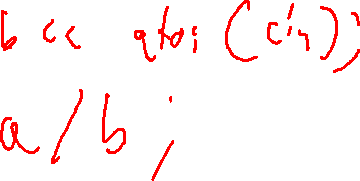 b << atoi(cin);
a/b;